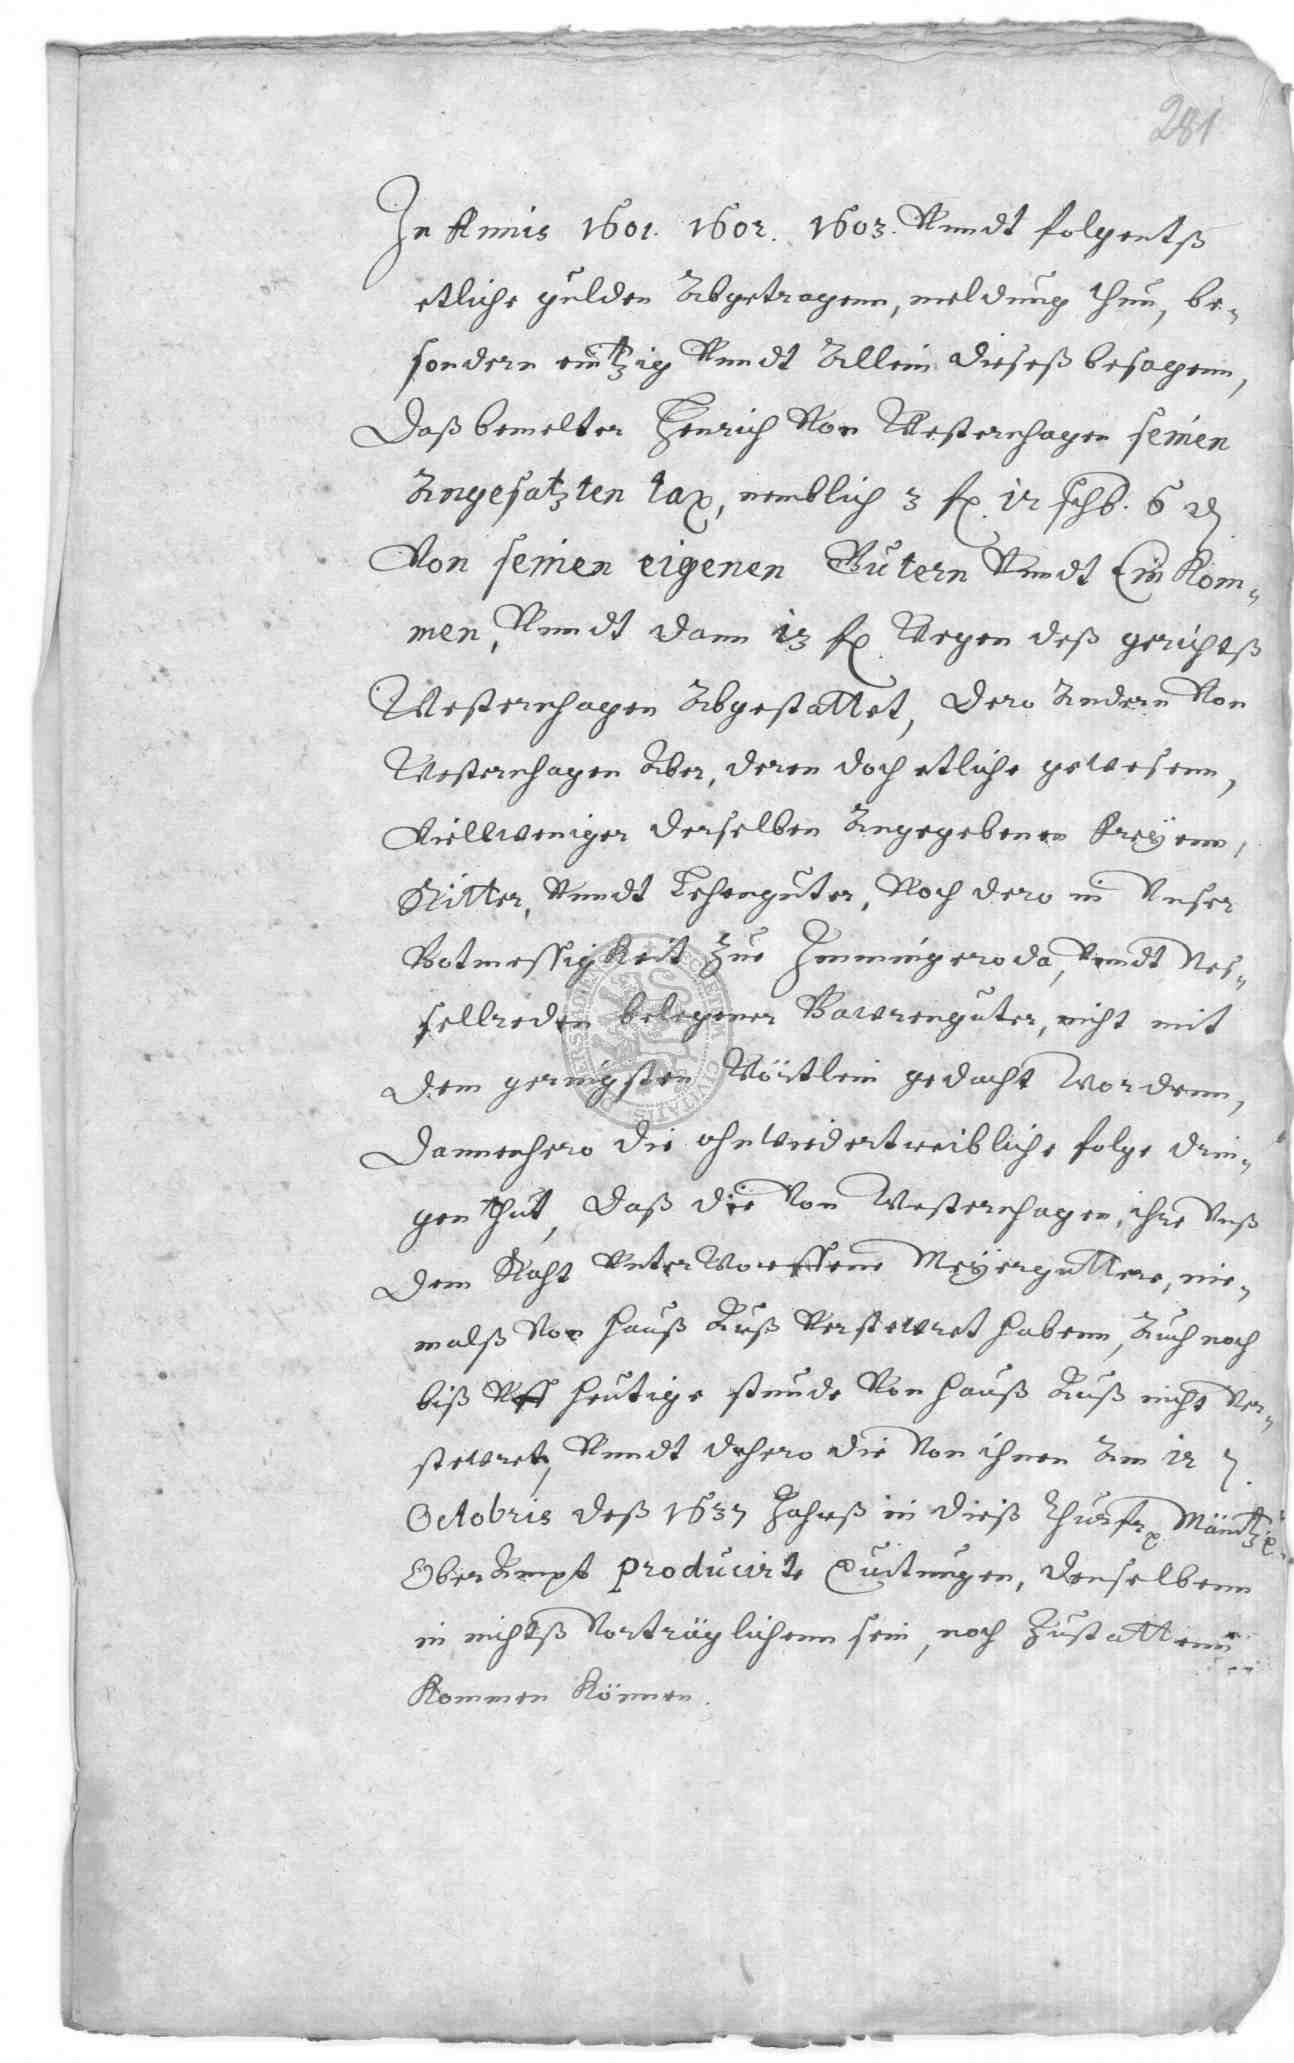 281
In Annis 1601. 1602. 1603. Vnndt folgentß
etliche gulden Abgetragenn, meldung thun, be-
sondern eintzig Vnndt Allein dieseß besagenn,
Daß bemelter Henrich Von Westernhagen seinen
Angesatzten tax, nemblich 3 fl. 12 schb. 6 ₰
Von seinen eigenen Gütern Vnndt Einkom-
men, Vnndt dann 13 fl. Wegen deß gerichtß
Westernhagen Abgestattet, dero Andern Von
Westernhagen Aber, deren doch etliche gewesenn,
Viellweniger derselben Angegebenen Freÿenn,
Ritter, Vnndt Lehengüter, Noch dero in Vnser
Botmessigkeit Zue Immingeroda, Vnndt Nes-
sellreden belegener Bawrengüter, nicht mit
dem geringsten Wörtlein gedacht Wordenn,
Dannenhero die ohnwiedertreibliche folge drin-
gen thut, Daß die Von Westernhagen, ihre Vnß
dem Raht VnterWorffene Meÿergüttere, nie-
malß Von Hauß Auß Versteuret habenn, Auch noch
biß Vff heutige stunde Von Hauß Auß nicht Ver-
steuret, Vnndt dahero die Von ihnen Am 12
Octobris deß 1637 Jahrß in dieß Churfr. Mäintz.
OberAmpt producirte Quitungen, denselbenn
in nichtß Vorträglichenn sein, noch Zustattenn
Kommen Können.